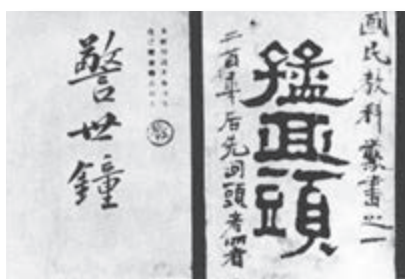 國民教科叢書之一
猛囬頭
二百年后先囬頭者
警世鐘